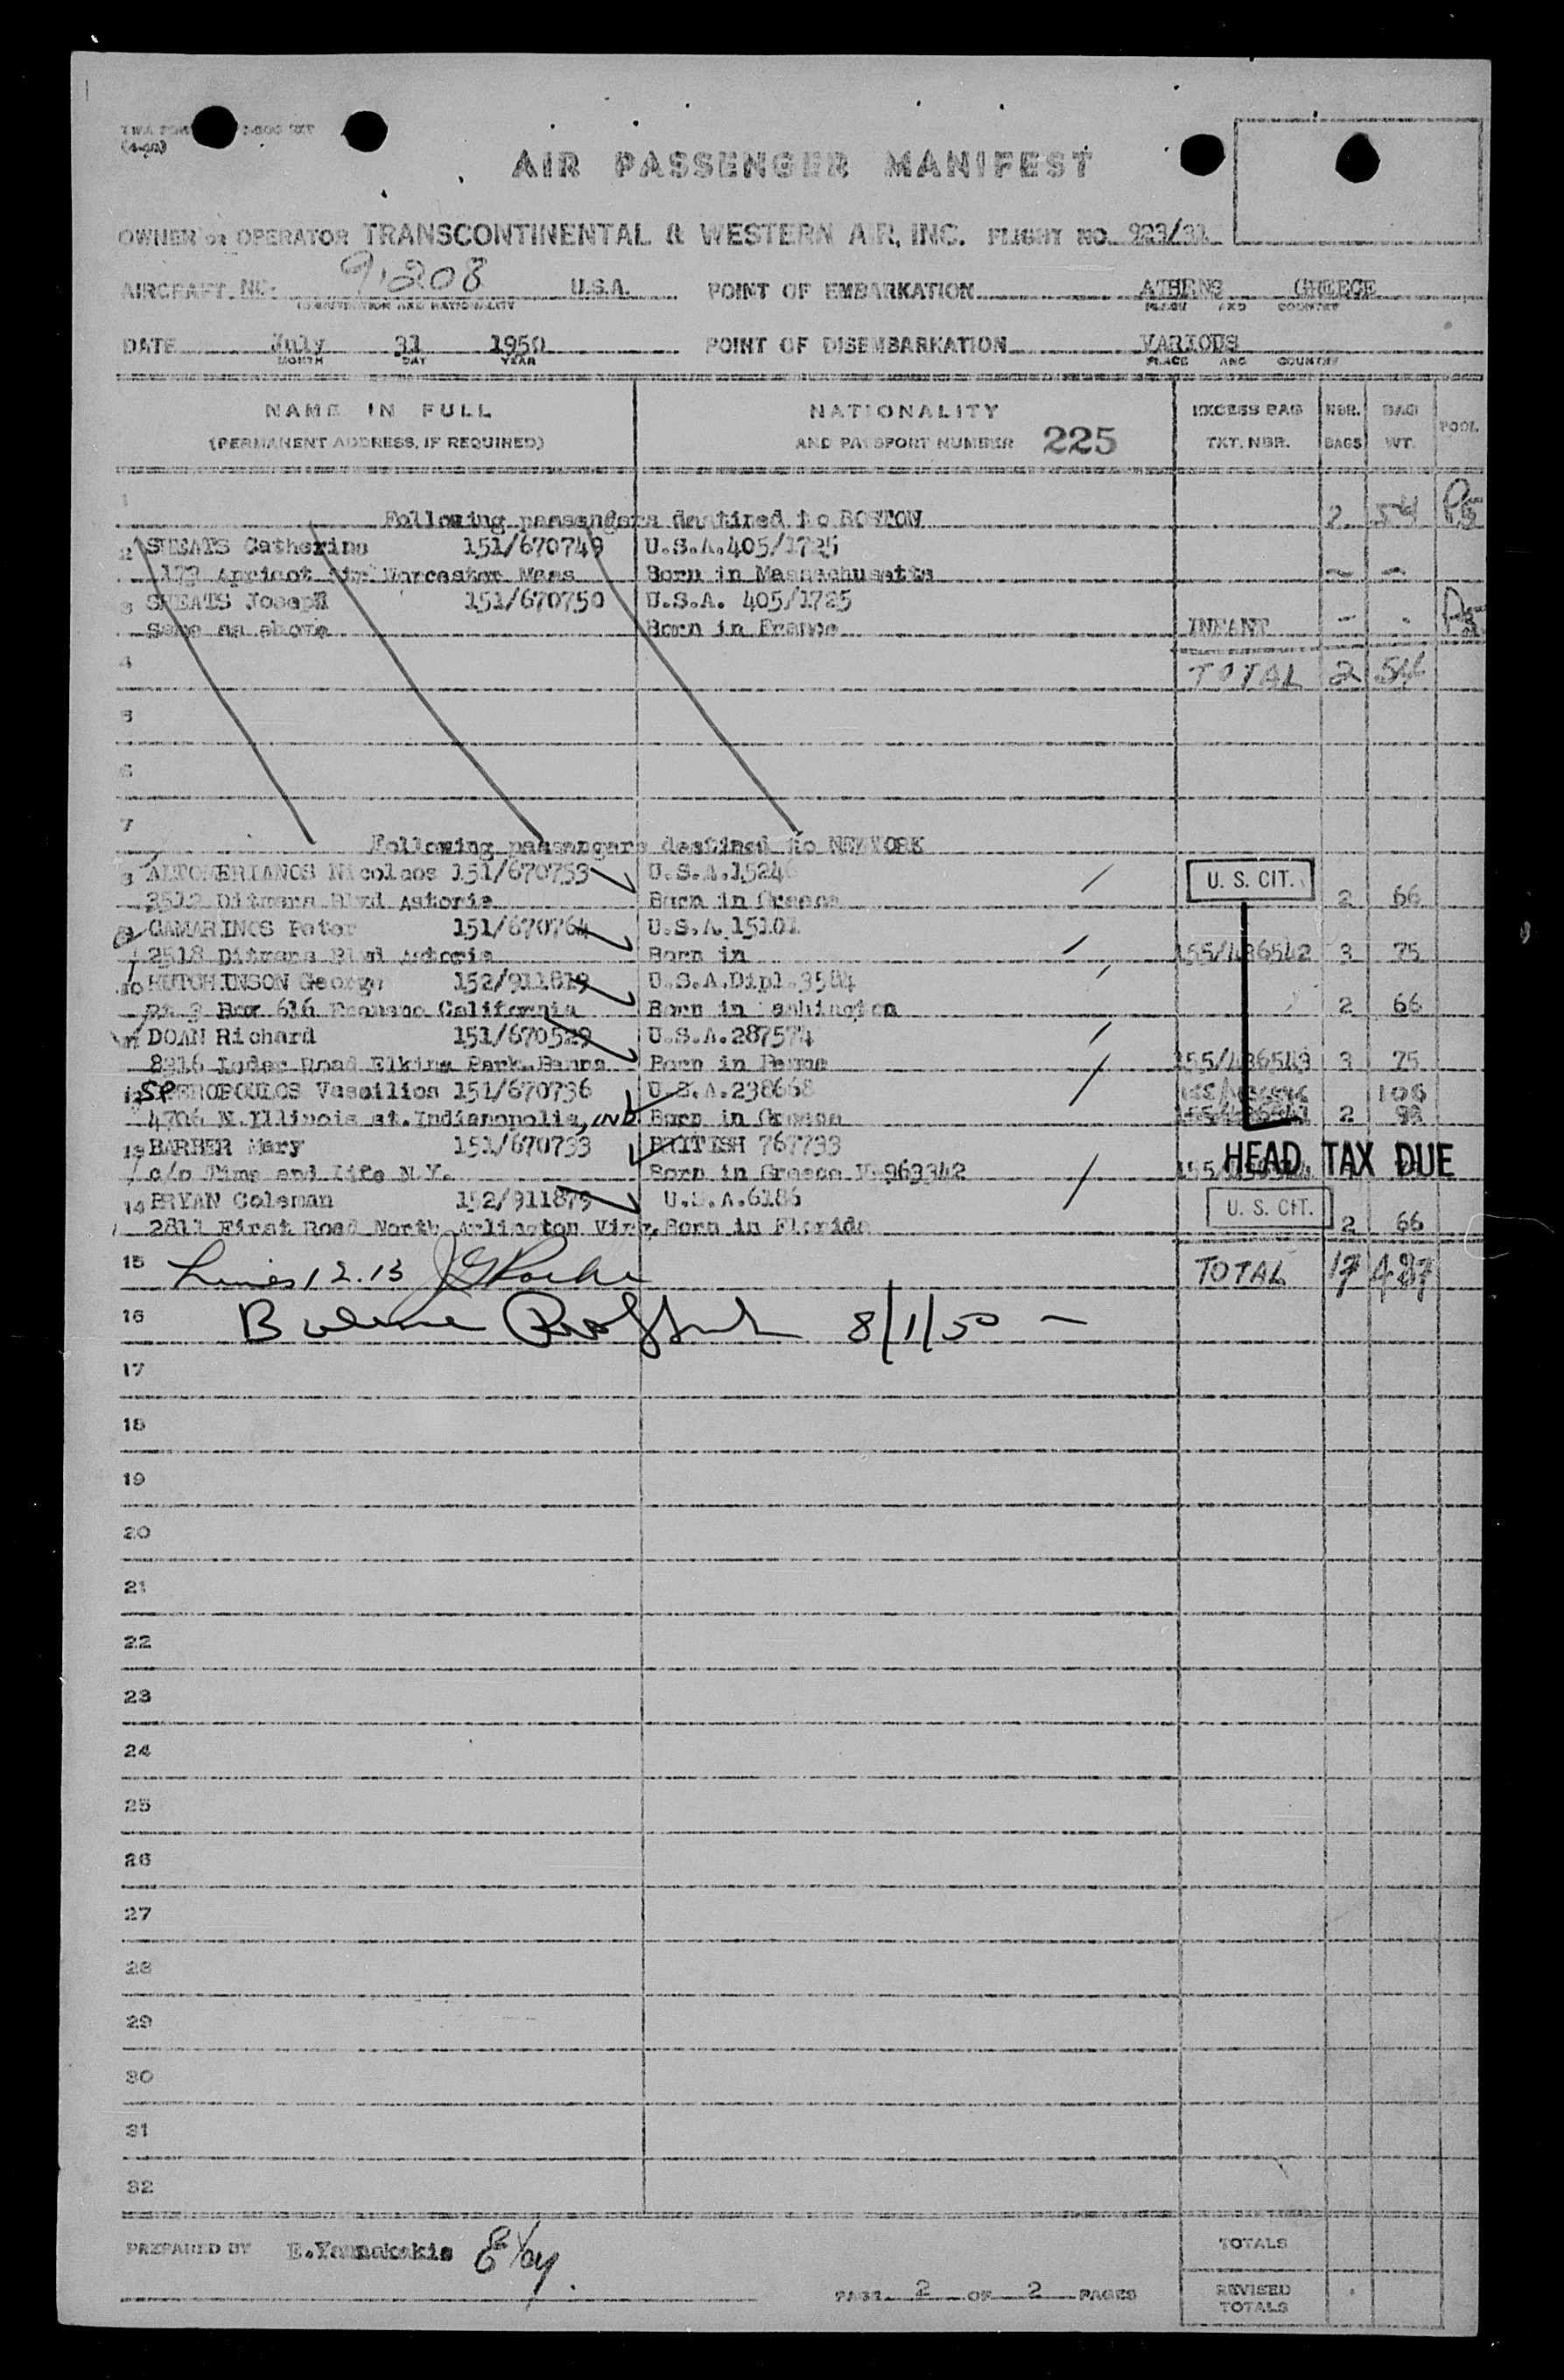 TWA FORM
AIR PASSENGER MANIFEST
OWNER or OPERATOR TRANSCONTINENTAL & WESTERN AIR, INC. FLIGHT NO. 923/31
AIRCRAFT NO. 9.208 U.S.A. POINT OF EMBARKATION ATHENS GREECE
CONSTITUTION AND NATIONALITY PLACE AND COUNTRY
DATE July 31 1950 POINT OF DISEMBARKATION VARIOUS
MONTH DAY YEAR PLACE AND COUNTRY
NAME IN FULL NATIONALITY EXCESS BAG NBR. BAG POOL
(PERMANENT ADDRESS, IF REQUIRED) AND PASSPORT NUMBER 225 TKT. NBR. BAGS WT.
1
Following passengers destined to BOSTON 2 54
2 SHEATS Catherine 151/670749 U.S.A. 405/1725
179 Apricot Str Worcester Mass Born in Massachusetts - -
3 SHEATS Joseph 151/670750 U.S.A. 405/1725
Same as above Born in France INFANT - -
4 TOTAL 2 54
5
6
7
Following passengers destined to NEW YORK
8 ALTOMERIANOS Nicolaos 151/670753 U.S.A.15246 U. S. CIT.
Ditmars Blvd Astoria Born in Greece 2 66
9 GAMARINOS Peter 151/670764 U.S.A. 15101
2518 Ditmars Blvd Astoria Born in 155/436542 3 75
10 HUTCHINSON George 152/911819 U.S.A.Dipl.3584
Box 616 California Born in Washington 2 66
11 DOAN Richard 151/670529 U.S.A.287574
8216 Road Elkins Park Penna Born in Penna 155/436543 3 75
12 SPEROPOULOS Vassilios 151/670736 U.S.A.238668 106
4706 N.Illinois st.Indianapolis, IND Born in Greece 2
13 BARBER Mary 151/670733 BRITISH 767733 HEAD TAX DUE
c/o Time and Life N.Y. Born in Greece V-963342
14 BRYAN Coleman 152/911875 U.S.A.6186 U. S. CIT.
2811 First Road North Arlington Virg. Born in Florida 2 66
15 Lines 12.13 TOTAL 17 487
16 8/1/50 -
17
18
19
20
21
22
23
24
25
26
27
28
29
30
31
32
PREPARED BY E.Yannakakis TOTALS
PAGE 2 OF 2 PAGES REVISED TOTALS